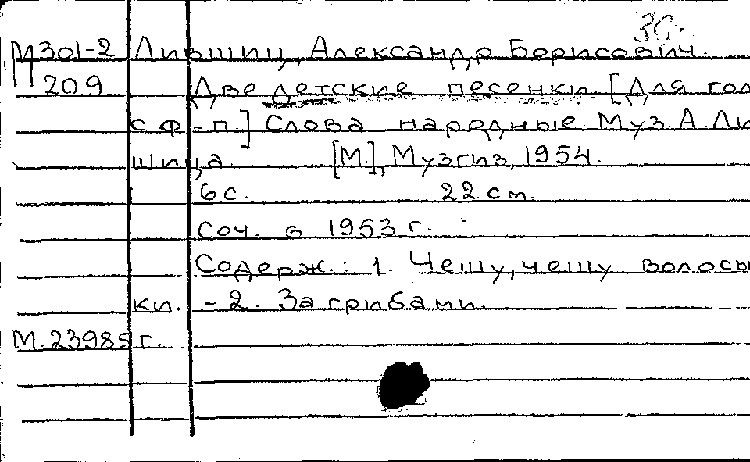 30.
М 301-2 Лившиц, Александр Борисович.
209 Две детские песенки [Для гол
с ф-п.] Слова народные Муз А Ли
шица. [М.], Музгиз, 1954.
6 с. 22 см.
Соч. в 1953 г.
Содерж.: 1. Чешу, чешу волосы
ки. - 2. За грибами.
М. 23985 г.